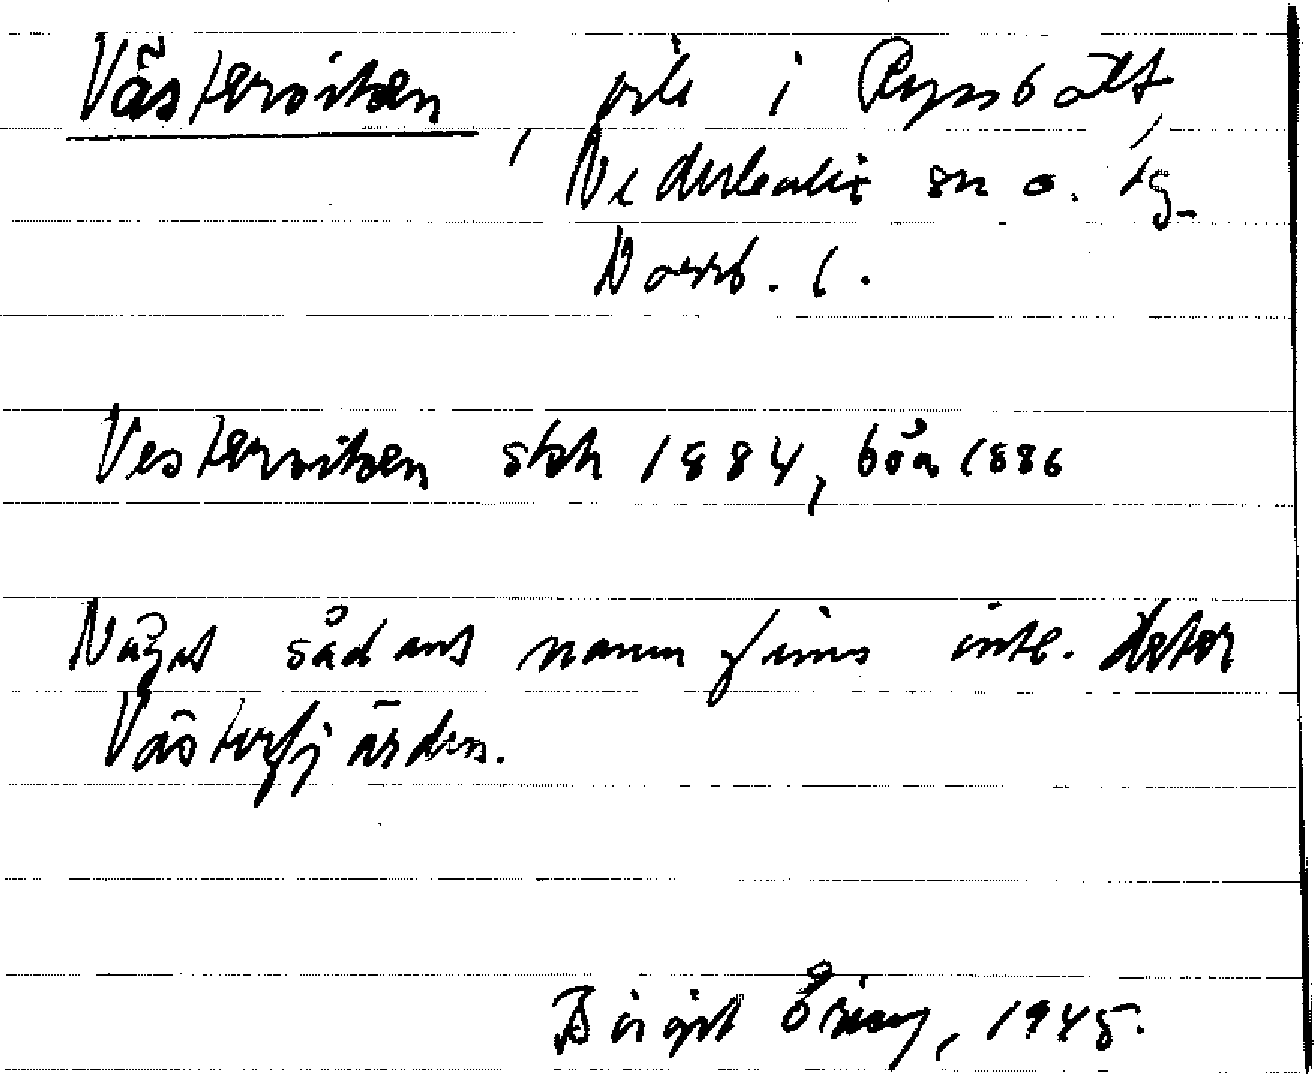 Västerviken, vik i Rynsbält,
Nederkalix sn o. tg.
Norrb. l.
Vesterviken skh 1884, böa 1886
Något sådant namn finns inte. Heter
Västerfjärden.
Birgit Öring, 1945.